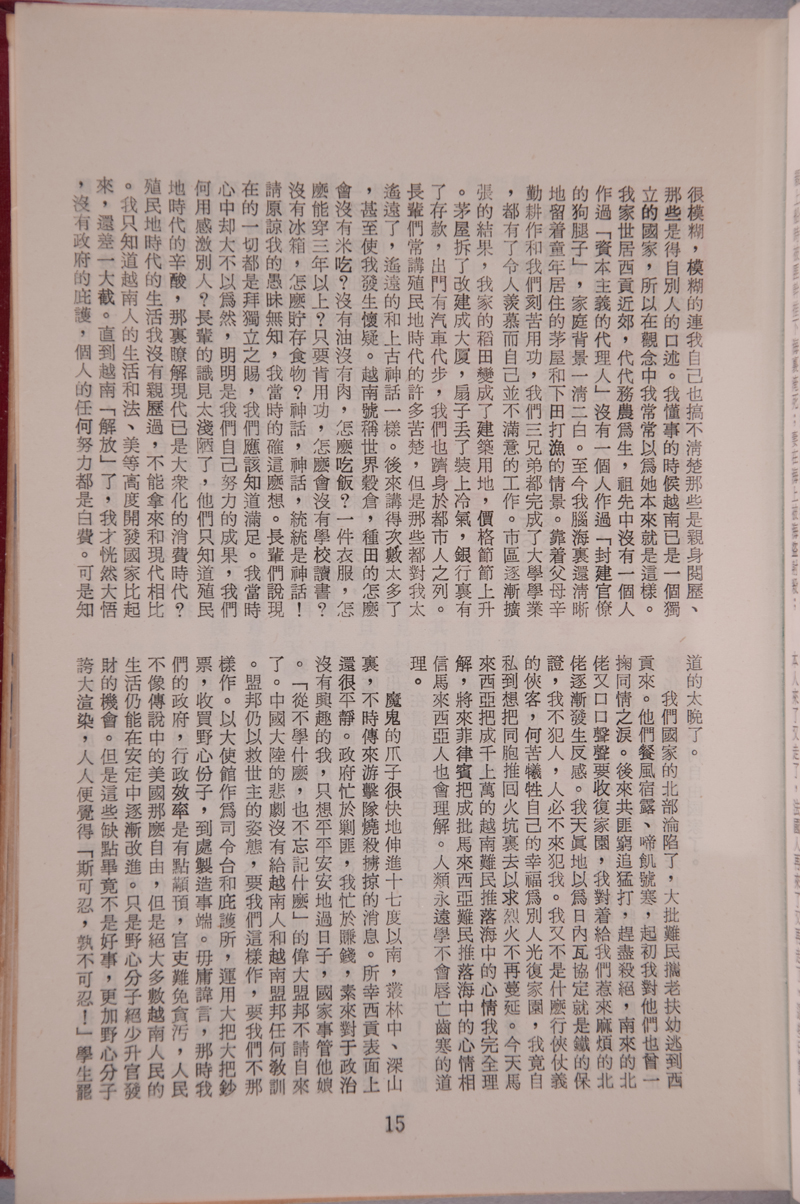 很模糊，模糊的連我自己也搞不淸楚那些是親身閱歷、
那些是得自別人的口述。我懂事的時候越南已是一個獨
立的國家，所以在觀念中我常常以爲她本來就是這樣。
我家世居西貢近郊，代代務農爲生，祖先中沒有一個人
作過「資本主義的代理人」沒有一個人作過「封建官僚
的狗腿子」，家庭背景一淸二白。至今我腦海裏還淸晰
地留着童年居住的茅屋和下田打漁的情景。靠着父母辛
勤耕作和我們刻苦用功，我們三兄弟都完成了大學學業
，都有了令人羨慕而自己並不滿意的工作。市區逐漸擴
張的結果，我家的稻田變成了建築用地，價格節節上升
。茅屋拆了改建成大厦，扇子丟了裝上冷氣，銀行裏有
了存款，出門有汽車代步，我們也躋身於都市人之列。
長輩們常講殖民地時代的許多苦楚，但是那些都對我太
遙遠了，遙遠的和上古神話一樣。後來講得次數太多了
，甚至使我發生懷疑。越南號稱世界穀倉，種田的怎麽
會沒有米吃？沒有油沒有肉，怎麽吃飯？一件衣服，怎
麽能穿三年以上？只要肯用功，怎麽會沒有學校讀書？
沒有冰箱，怎麽貯存食物？神話，神話，統統是神話！
請原諒我的愚昧無知，我當時的確這麽想。長輩們說現
在的一切都是拜獨立之賜，我們應該知道滿足。我當時
心中却大不以爲然，明明是我們自己努力的成果，我們
何用感激別人？長輩的識見太淺陋了，他們只知道殖民
地時代的辛酸，那裏瞭解現代已是大衆化的消費時代？
殖民地時代的生活我沒有親歷過，不能拿來和現代相比
。我只知道越南人的生活和法、美等高度開發國家比起
來，還差一大截。直到越南「解放」了，我才恍然大悟
，沒有政府的庇護，個人的任何努力都是白費。可是知
道的太晚了。
我們國家的北部淪陷了，大批難民攜老扶幼逃到西
貢來。他們餐風宿露、啼飢號寒，起初我對他們也曾一
掬同情之淚。後來共匪窮追猛打，趕盡殺絕，南來的北
佬又口口聲聲要收復家園，我對着給我們惹來麻煩的北
佬逐漸發生反感。我天眞地以爲日內瓦協定就是鐵的保
證，我不犯人，人必不來犯我。我又不是什麽行俠仗義
的俠客，何苦犧牲自己的幸福爲別人光復家園，我竟自
私到想把同胞推囘火坑裏去以求烈火不再蔓延。今天馬
來西亞把成千上萬的越南難民推落海中的心情我完全理
解，將來菲律賓把成批馬來西亞難民推落海中的心情相
信馬來西亞人也會理解。人類永遠學不會唇亡齒寒的道
理。
魔鬼的爪子很快地伸進十七度以南，叢林中、深山
裏，不時傳來游擊隊燒殺擄掠的消息。所幸西貢表面上
還很平靜。政府忙於剿匪，我忙於賺錢，素來對于政治
沒有興趣的我，只想平平安安地過日子，國家事管他娘
。「從不學什麽，也不忘記什麽」的偉大盟邦不請自來
了。中國大陸的悲劇沒有給越南人和越南盟邦任何敎訓
。盟邦仍以救世主的姿態，要我們這樣作，要我們不那
樣作。以大使館作爲司令台和庇護所，運用大把大把鈔
票，收買野心份子，到處製造事端。毋庸諱言，那時我
們的政府，行政效率是有點顢頇，官吏難免貪汚，人民
不像傳說中的美國那麽自由，但是絕大多數越南人民的
生活仍能在安定中逐漸改進。只是野心分子絕少升官發
財的機會。但是這些缺點畢竟不是好事，更加野心分子
誇大渲染，人人便覺得「斯可忍，孰不可忍！」學生罷
15